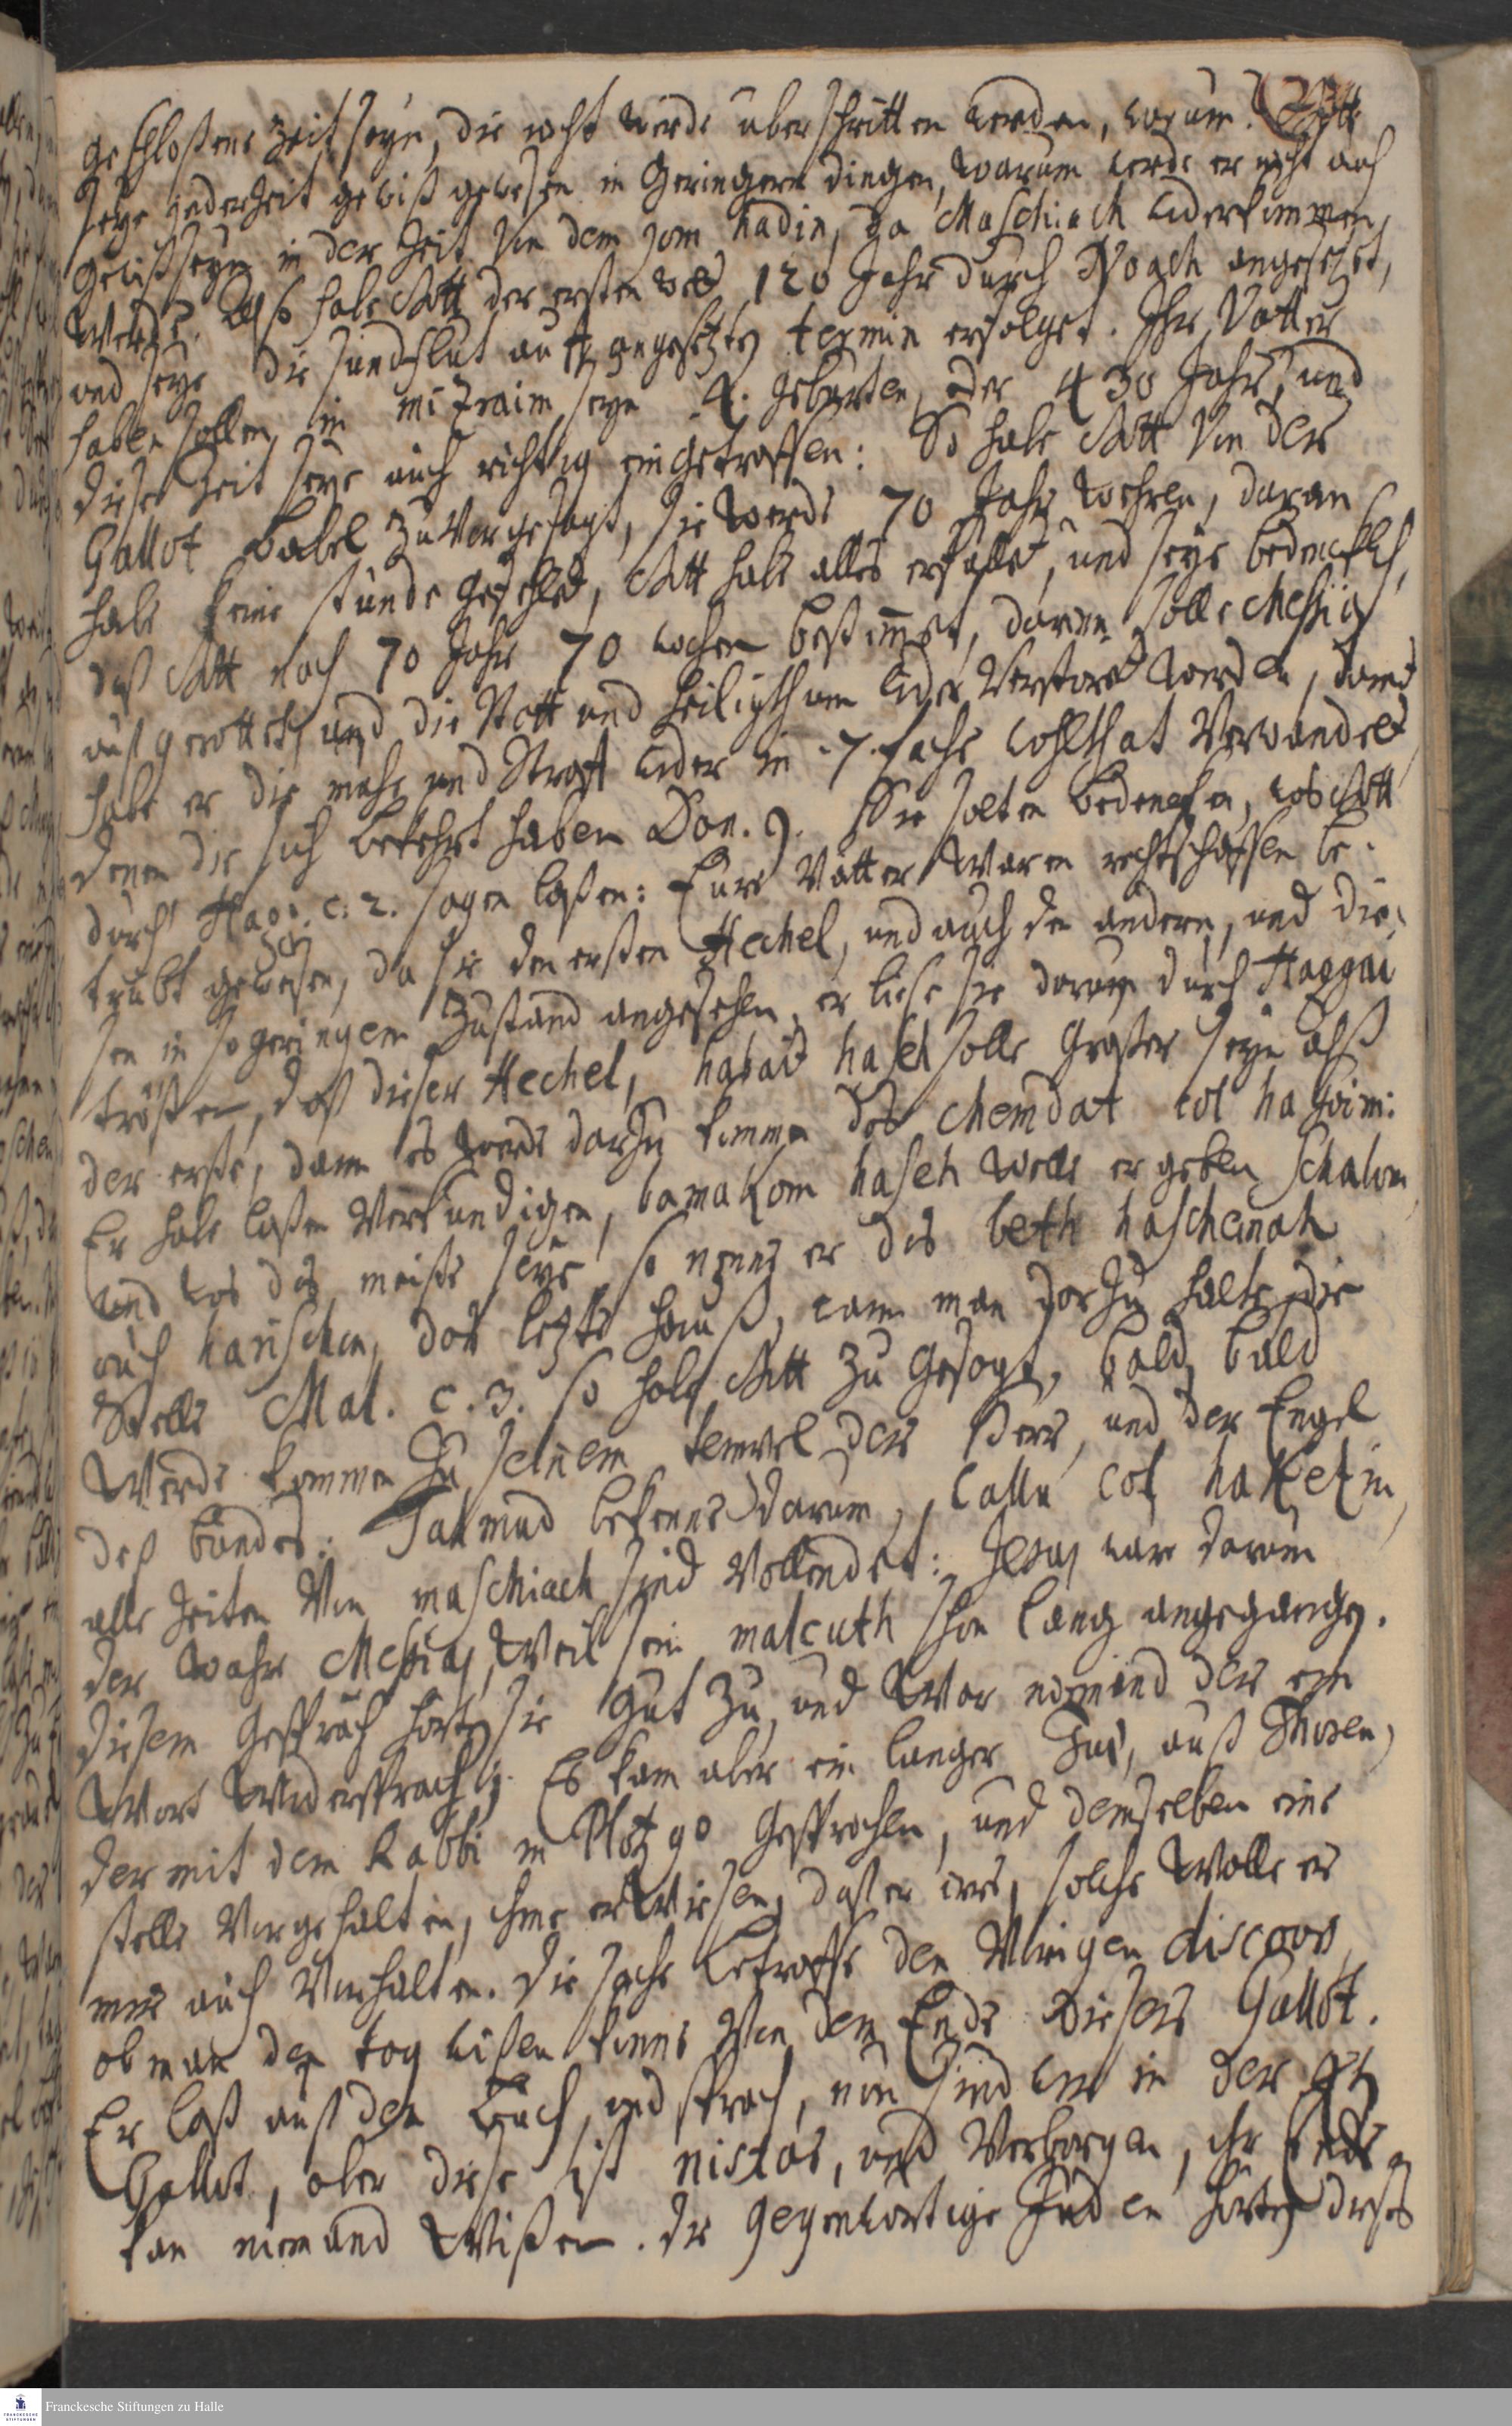 geschloßene Zeit seyn, die nicht werde überschritten werden, warum? Gott
seye jederzeit gewiß gewesen in Geringern dingen, warum werde er nicht auch
Gewiß seyn in der Zeit von dem jom hadin, da Maschiach widerkommen
werde? Also habe Gott der ersten welt 120 Jahr durch Noach angesezet,
und seye die sündflut auff angesetzten termin erfolget. Ihr Vätter
haben sollen in mizraim seyn 4. geburten, oder 430 Jahr, und
diese Zeit seye auch richtig eingetroffen: So habe Gott von der
Gallot babel zuvor gesagt, sie werde 70 Jahr wehren, daran
habe keine stunde gefehlet, Gott habe alles erfüllet, und seye bedencklich,
daß Gott nach 70 Jahr 70 wochen bestimmet, darinn solle Messias
außgerottet, und die Statt und heiligthum wider verstöret werden, damit
habe er die mühe und Straff wider in 7.fache wohlthat verwandlet
denen die sich bekehrt haben Dan. 9. Sie solten bedencken, was Gott
durch Hag. c. 2. sagen laßen: Eure Vätter waren rechtschaffen be-
trübt gewesen, da sie den ersten Hechel, und auch den andern, und die-
sen in so geringem Zustand angesehen, er liese sie darum durch Haggai
trösten, daß dieser Hechel, habait haseh solle größer seyn alß
der erste, dann es werde darzu kommen das chemdat col hagoim:
Er habe laßen verkündigen, bamakom haseh wolle er geben schalom
und was das meiste seye, so nenne er das beth haschenah
auch harischon, das letzte hauß, wann man darzu halte die
Stelle Mal. c. 3. so habe Gott zu gesagt, bald, bald
werde kommen zu seinem tempel der Herr, und der Engel
deß bundes: Talmud bekenne darum, callu col hakezin,
alle Zeiten von maschiach sind vollendet: Jesus wäre darum
der wahre Messias, weil sein malcuth schon lang angegangen.
Diesem Gespräch horten sie gut zu, und war niemand der ein
Wort widersprach. Es kam aber ein langer Jud, auß Thoren,
der mit dem Rabbi in Plotzgo gesprochen, und demselben eine
stelle vorgehalten, ihme erwiesen, daß er irre, solche wolle er
mir auch vorhalten. Die sache betraffe den vorigen discours,
ob man den tag wißen könne von dem Ende dieser Gallot.
Er laß auß dem buch, und sprach, nun sind wir in der
Gallot, aber diese ist nistar, und verborgen, ihr Ende
kan niemand wißen. Die gegenwärtige Juden horten dises